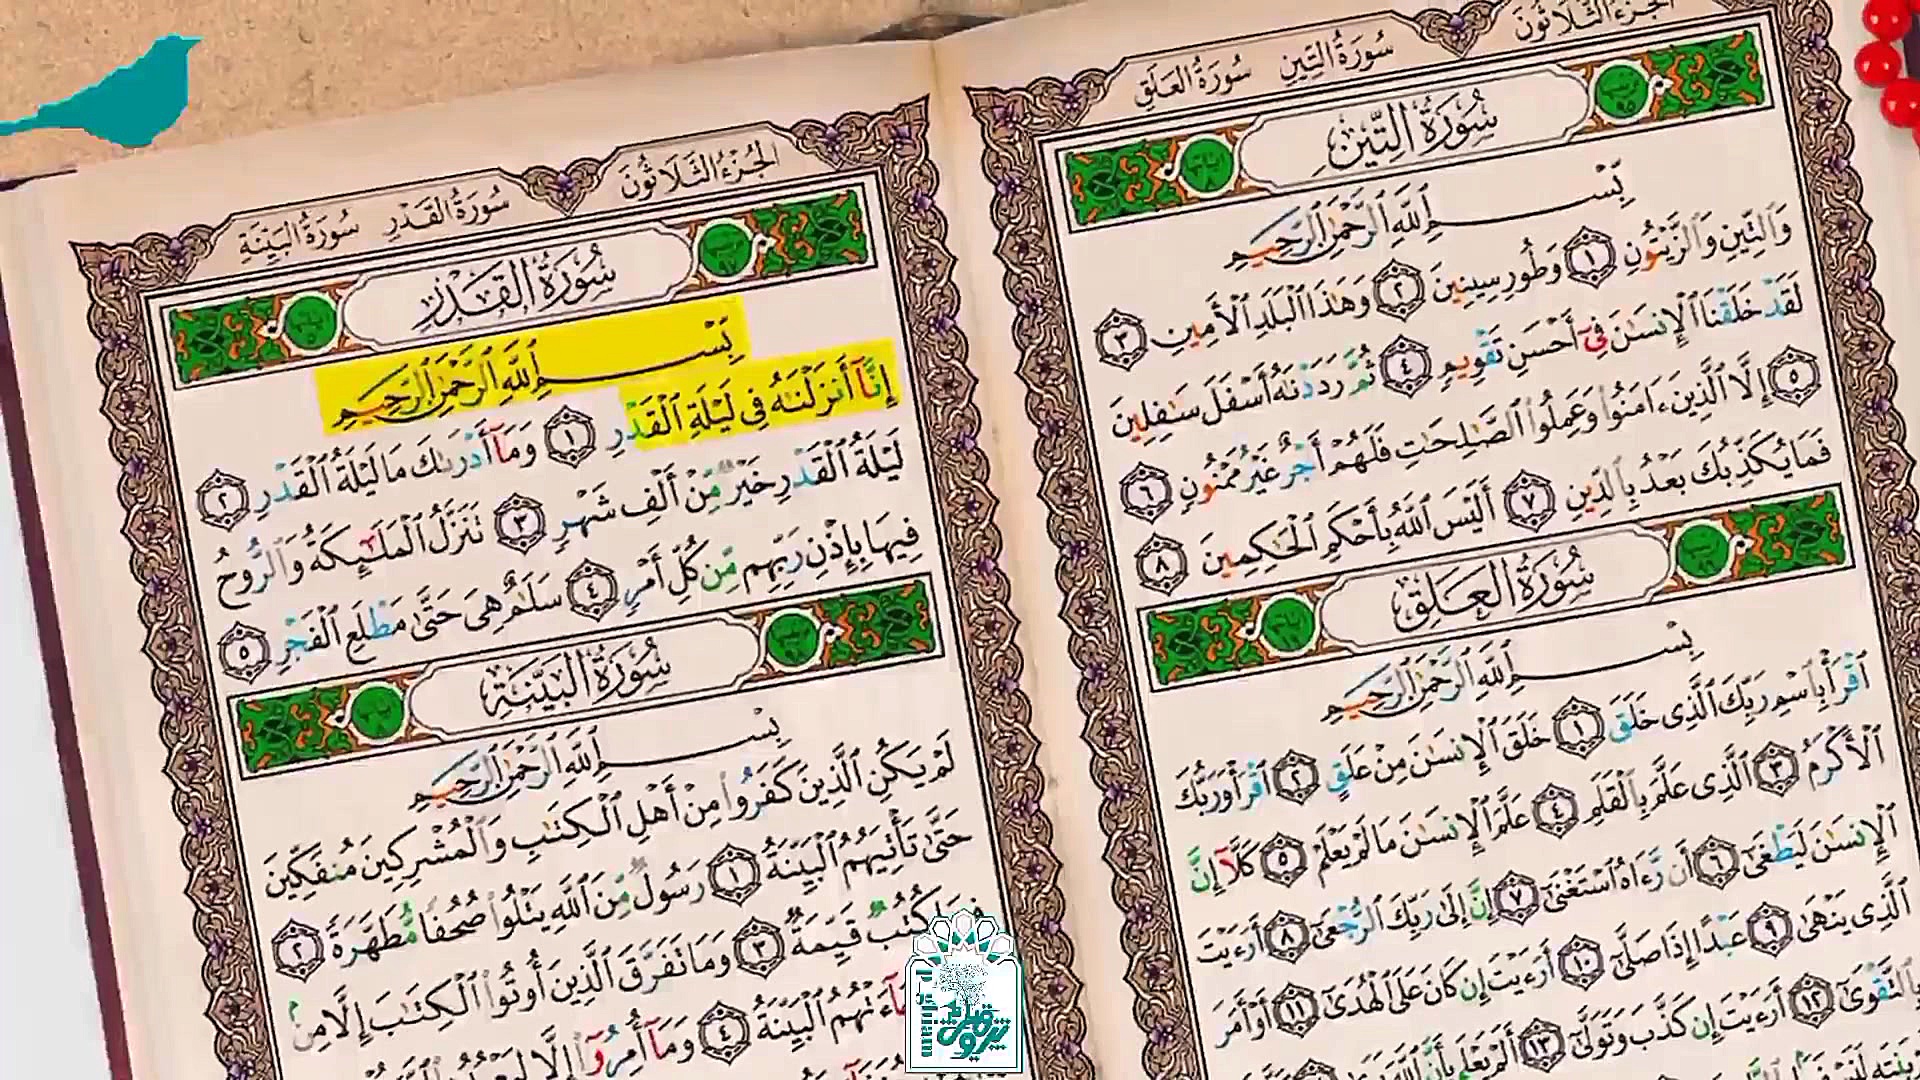 الجزء الثلاثون
سورة التين سورة العلق
سُورَةُ التِّينِ
بِسْمِ ٱللَّهِ ٱلرَّحْمَٰنِ ٱلرَّحِيمِ
وَٱلتِّينِ وَٱلزَّيْتُونِ ١ وَطُورِ سِينِينَ ٢ وَهَٰذَا ٱلْبَلَدِ ٱلْأَمِينِ ٣
لَقَدْ خَلَقْنَا ٱلْإِنسَٰنَ فِىٓ أَحْسَنِ تَقْوِيمٍ ٤ ثُمَّ رَدَدْنَٰهُ أَسْفَلَ سَٰفِلِينَ
٥ إِلَّا ٱلَّذِينَ ءَامَنُوا۟ وَعَمِلُوا۟ ٱلصَّٰلِحَٰتِ فَلَهُمْ أَجْرٌ غَيْرُ مَمْنُونٍ ٦
فَمَا يُكَذِّبُكَ بَعْدُ بِٱلدِّينِ ٧ أَلَيْسَ ٱللَّهُ بِأَحْكَمِ ٱلْحَٰكِمِينَ ٨
سُورَةُ العَلَقِ
بِسْمِ ٱللَّهِ ٱلرَّحْمَٰنِ ٱلرَّحِيمِ
ٱقْرَأْ بِٱسْمِ رَبِّكَ ٱلَّذِى خَلَقَ ١ خَلَقَ ٱلْإِنسَٰنَ مِنْ عَلَقٍ ٢ ٱقْرَأْ وَرَبُّكَ
ٱلْأَكْرَمُ ٣ ٱلَّذِى عَلَّمَ بِٱلْقَلَمِ ٤ عَلَّمَ ٱلْإِنسَٰنَ مَا لَمْ يَعْلَمْ ٥ كَلَّآ إِنَّ
ٱلْإِنسَٰنَ لَيَطْغَىٰٓ ٦ أَن رَّءَاهُ ٱسْتَغْنَىٰٓ ٧ إِنَّ إِلَىٰ رَبِّكَ ٱلرُّجْعَىٰٓ ٨ أَرَءَيْتَ
ٱلَّذِى يَنْهَىٰ ٩ عَبْدًا إِذَا صَلَّىٰٓ ١٠ أَرَءَيْتَ إِن كَانَ عَلَى ٱلْهُدَىٰٓ ١١ أَوْ أَمَرَ
بِٱلتَّقْوَىٰٓ ١٢ أَرَءَيْتَ إِن كَذَّبَ وَتَوَلَّىٰٓ ١٣ أَلَمْ يَعْلَم بِأَنَّ ٱللَّهَ
الجزء الثلاثون
سورة القدر سورة البينة
سُورَةُ القَدْرِ
بِسْمِ ٱللَّهِ ٱلرَّحْمَٰنِ ٱلرَّحِيمِ
إِنَّآ أَنزَلْنَٰهُ فِى لَيْلَةِ ٱلْقَدْرِ ١ وَمَآ أَدْرَىٰكَ مَا لَيْلَةُ ٱلْقَدْرِ ٢
لَيْلَةُ ٱلْقَدْرِ خَيْرٌ مِّنْ أَلْفِ شَهْرٍ ٣ تَنَزَّلُ ٱلْمَلَٰٓئِكَةُ وَٱلرُّوحُ
فِيهَا بِإِذْنِ رَبِّهِم مِّن كُلِّ أَمْرٍ ٤ سَلَٰمٌ هِىَ حَتَّىٰ مَطْلَعِ ٱلْفَجْرِ ٥
سُورَةُ البَيِّنَةِ
بِسْمِ ٱللَّهِ ٱلرَّحْمَٰنِ ٱلرَّحِيمِ
لَمْ يَكُنِ ٱلَّذِينَ كَفَرُوا۟ مِنْ أَهْلِ ٱلْكِتَٰبِ وَٱلْمُشْرِكِينَ مُنفَكِّينَ
حَتَّىٰ تَأْتِيَهُمُ ٱلْبَيِّنَةُ ١ رَسُولٌ مِّنَ ٱللَّهِ يَتْلُوا۟ صُحُفًا مُّطَهَّرَةً ٢
فِيهَا كُتُبٌ قَيِّمَةٌ ٣ وَمَا تَفَرَّقَ ٱلَّذِينَ أُوتُوا۟ ٱلْكِتَٰبَ إِلَّا مِنۢ
جَآءَتْهُمُ ٱلْبَيِّنَةُ ٤ وَمَآ أُمِرُوٓا۟ إِلَّا لِيَعْبُدُوا۟